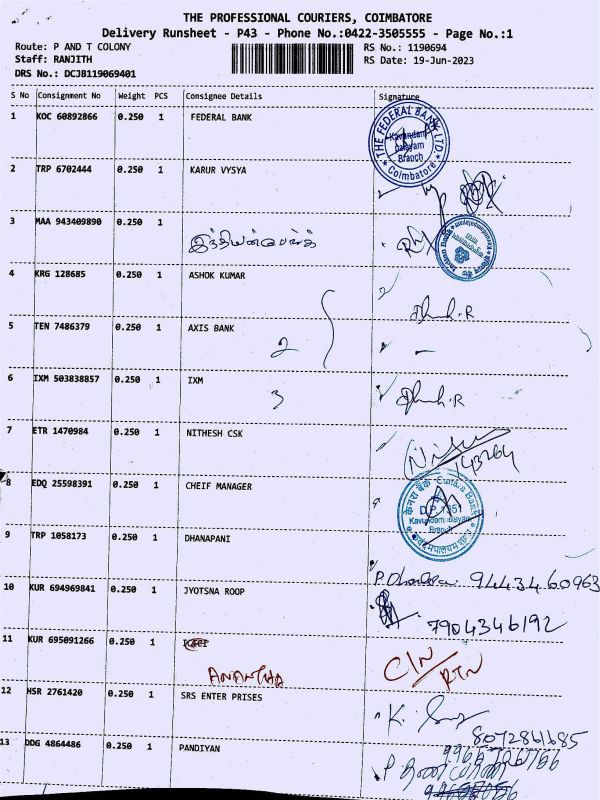 THE PROFESSIONAL COURIERS, COIMBATORE
Delivery Runsheet - P43 - Phone No.:0422-3505555 - Page No.:1
Route: P AND T COLONY RS No.: 1190694
Staff: RANJITH RS Date: 19-Jun-2023
DRS No.: DCJB119069401
S No Consignment No Weight PCS Consignee Details Signature
1 KOC 60892866 0.250 1 FEDERAL BANK
THE FEDERAL BANK LTD.
Kavundam
palayam
Branch
Coimbatore
2 TRP 6702444 0.250 1 KARUR VYSYA
3 MAA 943409890 0.250 1
இந்தியன் பேங்க்
Indian Bank
4 KRG 128685 0.250 1 ASHOK KUMAR
5 TEN 7486379 0.250 1 AXIS BANK
2
6 IXM 503838857 0.250 1 IXM
3
7 ETR 1470984 0.250 1 NITHESH CSK
143264
8 EDQ 25598391 0.250 1 CHEIF MANAGER
केनरा बैंक Canara Bank
Kavundampalayam
Branch
9 TRP 1058173 0.250 1 DHANAPANI
9443460963
10 KUR 694969841 0.250 1 JYOTSNA ROOP
7904346192
11 KUR 695091266 0.250 1
ANANTHA C/N/RTN
12 HSR 2761420 0.250 1 SRS ENTER PRISES
8072861685
13 DDG 4864486 0.250 1 PANDIYAN